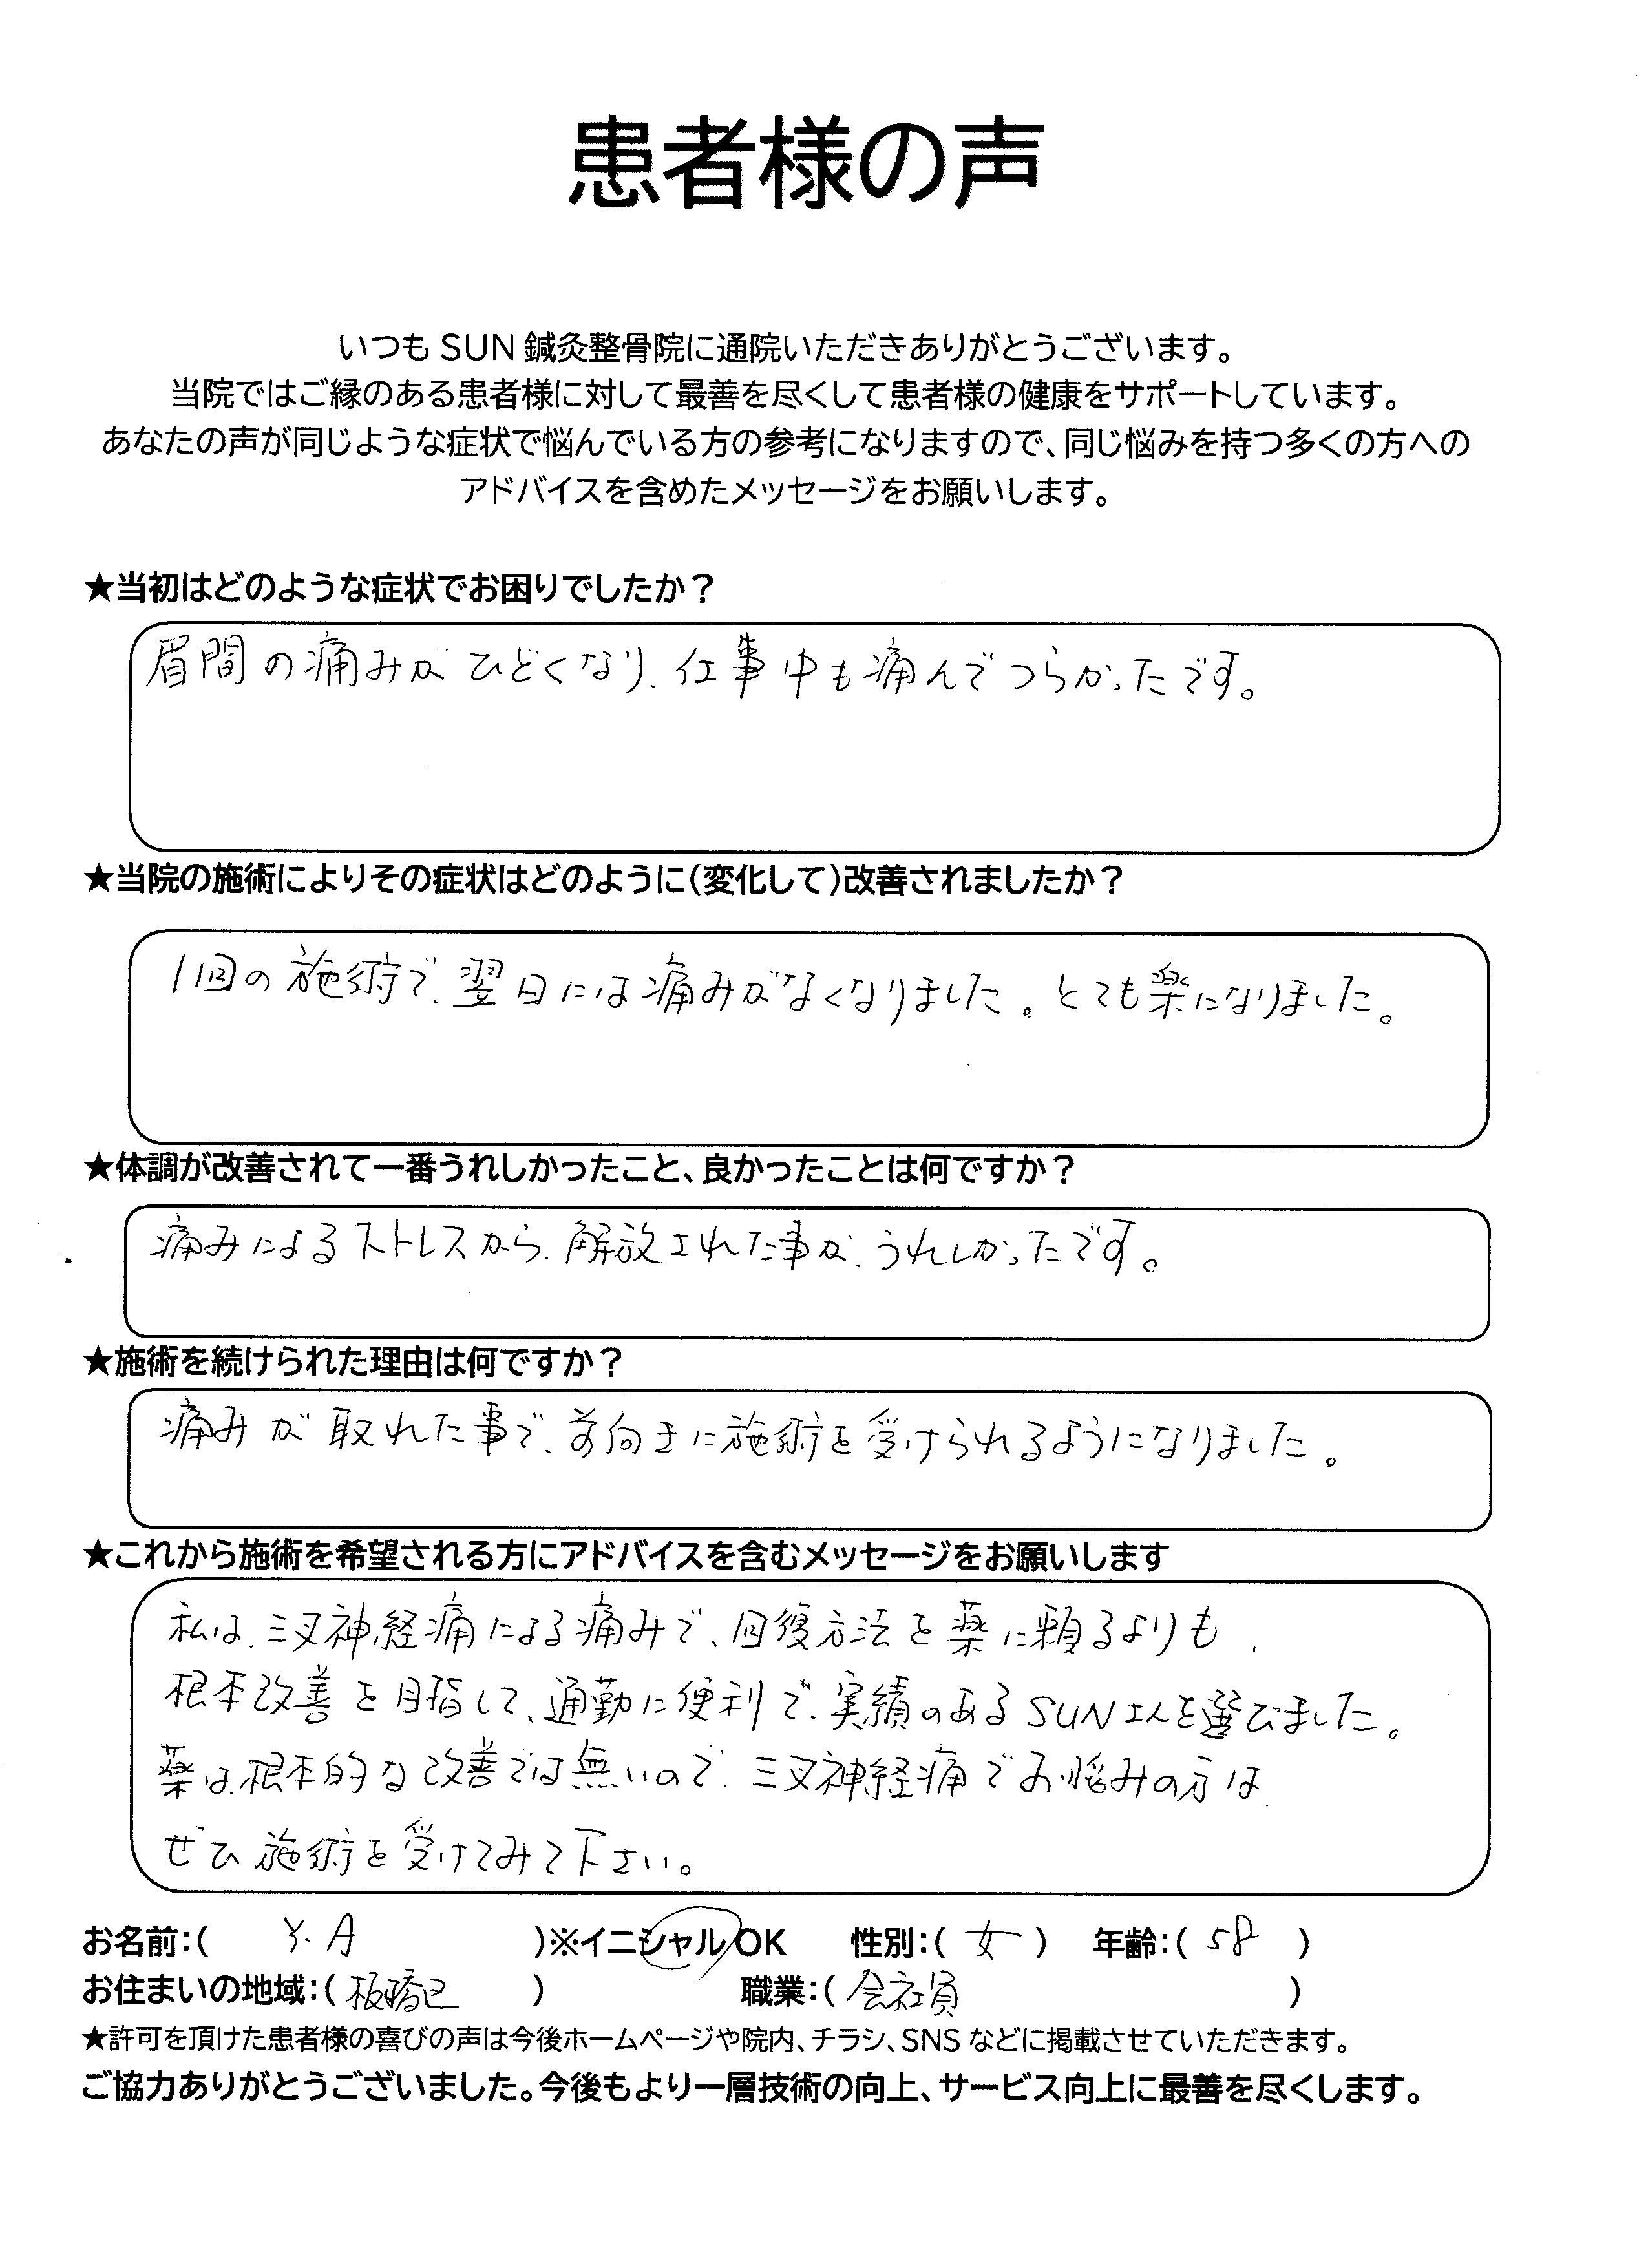 患者様の声
いつも SUN 鍼灸整骨院に通院いただきありがとうございます。
当院ではご縁のある患者様に対して最善を尽くして患者様の健康をサポートしています。
あなたの声が同じような症状で悩んでいる方の参考になりますので、同じ悩みを持つ多くの方への
アドバイスを含めたメッセージをお願いします。
★当初はどのような症状でお困りでしたか？
眉間の痛みがひどくなり、仕事中も痛んでつらかったです。
★当院の施術によりその症状はどのように(変化して)改善されましたか？
1回の施術で、翌日には痛みがなくなりました。とても楽になりました。
★体調が改善されて一番うれしかったこと、良かったことは何ですか？
痛みによるストレスから、解放された事が、うれしかったです。
★施術を続けられた理由は何ですか？
痛みが取れた事で、前向きに施術を受けられるようになりました。
★これから施術を希望される方にアドバイスを含むメッセージをお願いします
私は、三叉神経痛による痛みで、回復方法を薬に頼るよりも、
根本改善を目指して、通勤に便利で、実績のあるSUNさんを選びました。
薬は、根本的な改善では無いので、三叉神経痛でお悩みの方は
ぜひ施術を受けてみて下さい。
お名前:( Y.A )※イニシャルOK 性別:( 女 ) 年齢:( 58 )
お住まいの地域:( 板橋区 ) 職業:( 会社員 )
★許可を頂けた患者様の喜びの声は今後ホームページや院内、チラシ、SNS などに掲載させていただきます。
ご協力ありがとうございました。今後もより一層技術の向上、サービス向上に最善を尽くします。